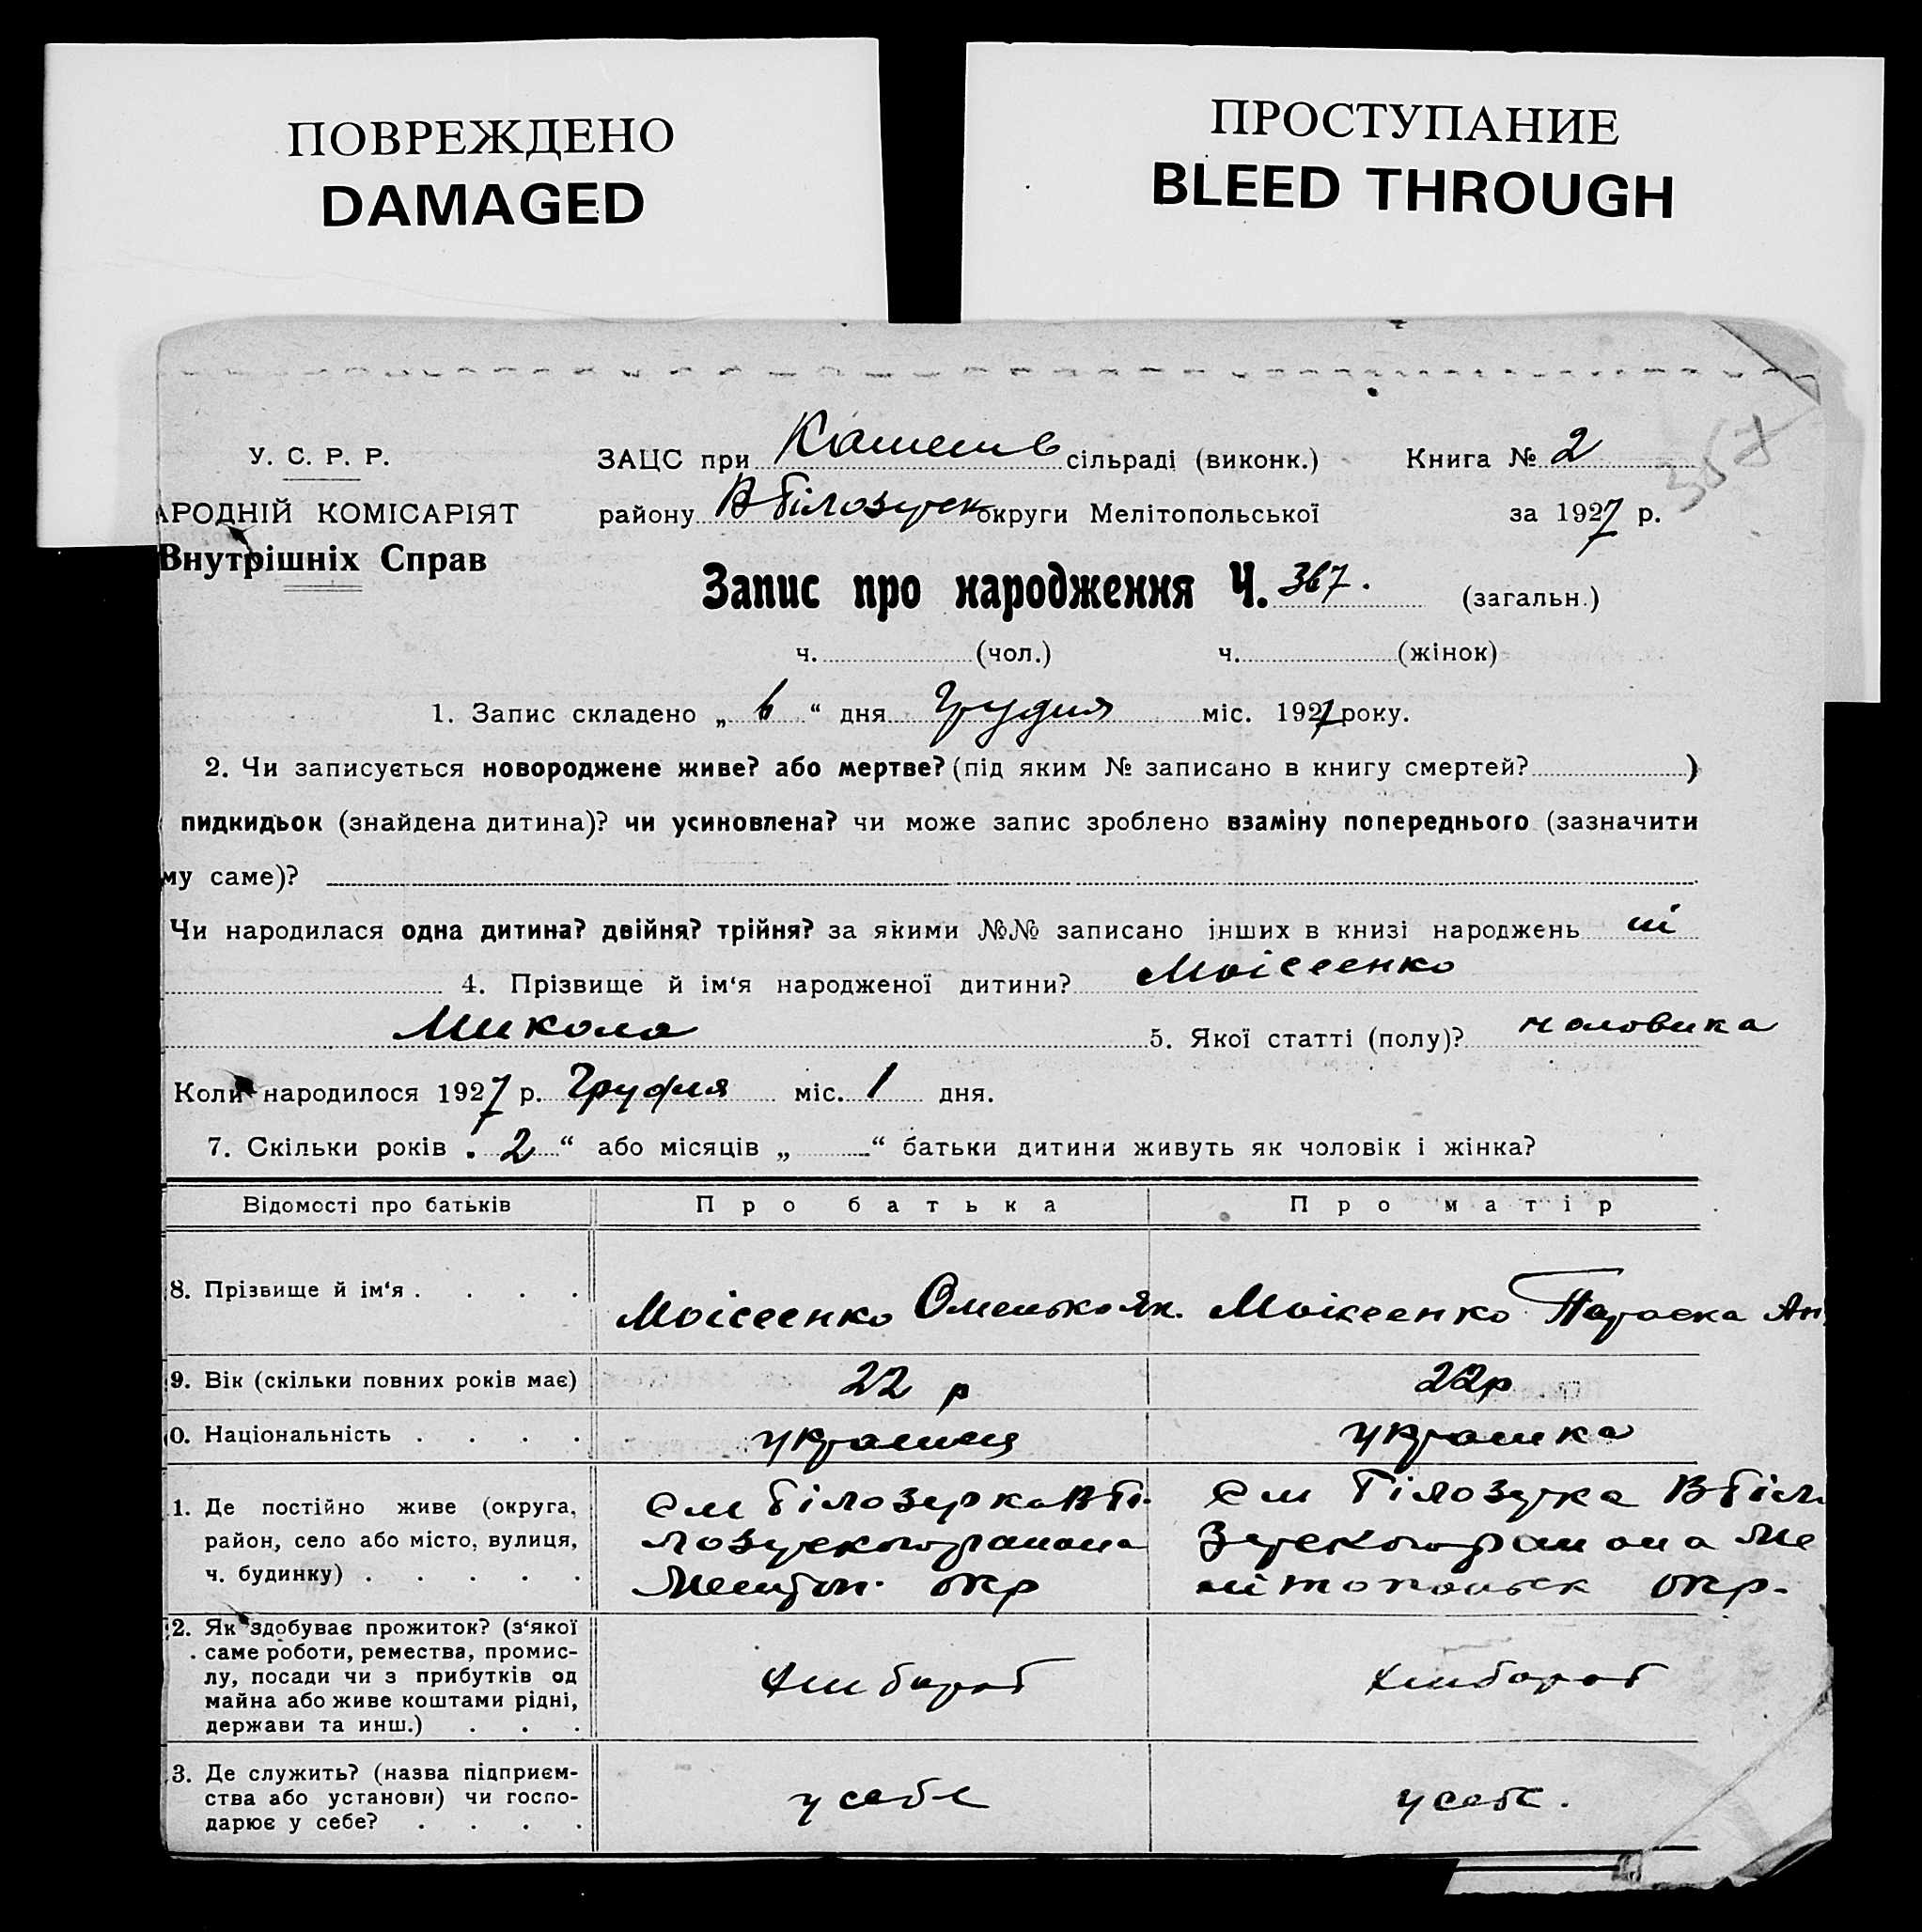 ПОВРЕЖДЕНО
DAMAGED
ПРОСТУПАНИЕ
BLEED THROUGH
У. С. Р. Р.
АРОДНІЙ КОМІСАРІЯТ
Внутрішніх Справ
ЗАЦС при сільраді (виконк.) Книга № 2
району В білозерск округи Мелітопольської за 1927 р.
367
Запис про народження Ч. 367. (загальн.)
ч. (чол.) ч. (жінок)
1. Запис складено „ 6 “ дня Грудня міс. 1927 року.
2. Чи записується новороджене живе? або мертве? (під яким № записано в книгу смертей? )
пидкидьок (знайдена дитина)? чи усиновлена? чи може запис зроблено взаміну попереднього (зазначити
му саме)?
Чи народилася одна дитина? двійня? трійня? за якими №№ записано інших в книзі народжень ні
4. Прізвище й ім‘я народженої дитини? Моісеенко
Микола 5. Якої статті (полу)? чоловика
Коли народилося 1927 р. Грудня міс. 1 дня.
7. Скільки років „ 2 “ або місяців „ “ батьки дитини живуть як чоловік і жінка?
Відомості про батьків Про батька Про матір
8. Прізвище й ім‘я . . . . Моісеенко Омелько Як. Моісеенко Параска Ан
9. Вік (скільки повних років має) 22 р 22р
0. Національність . . . . українец українка
1. Де постійно живе (округа,
район, село або місто, вулиця,
ч. будинку) . . . . .
См Білозерка В Бі
лозерского района
Меліт оп. окр
См Білозерка В біл
зерского раиона Ме
літопольск окр.
2. Як здобуває прожиток? (з‘якої
саме роботи, ремества, промис-
лу, посади чи з прибутків од
майна або живе коштами рідні,
держави та инш.) . . .
Хлибороб Хлибороб
3. Де служить? (назва підприєм-
ства або установи) чи госпо-
дарює у себе? . . . .
у себе у себе.